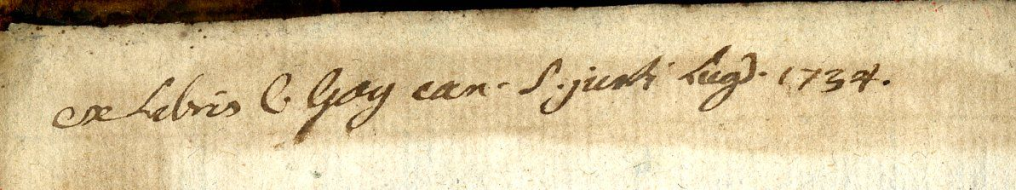 ex Libris C Gay can. S. justi Lugd. 1734.